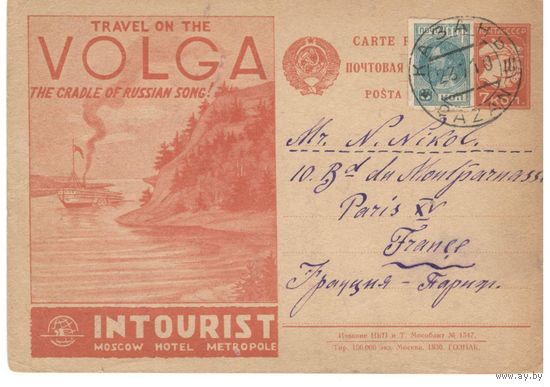 TRAVEL ON THE
VOLGA
THE CRADLE OF RUSSIAN SONG!
INTOURIST
MOSCOW HOTEL METROPOLE
CARTE
ПОЧТОВАЯ
POŠTA
КАЗАНЬ
KAZAN
Mr. N. Nikol.
10. Bd du Montparnass
Paris XV
France
Франция - Париж.
Издание НКПиТ. Мособлит № 1547.
Тир. 150.000 экз. Москва, 1930. ГОЗНАК.
http://www.ay.by